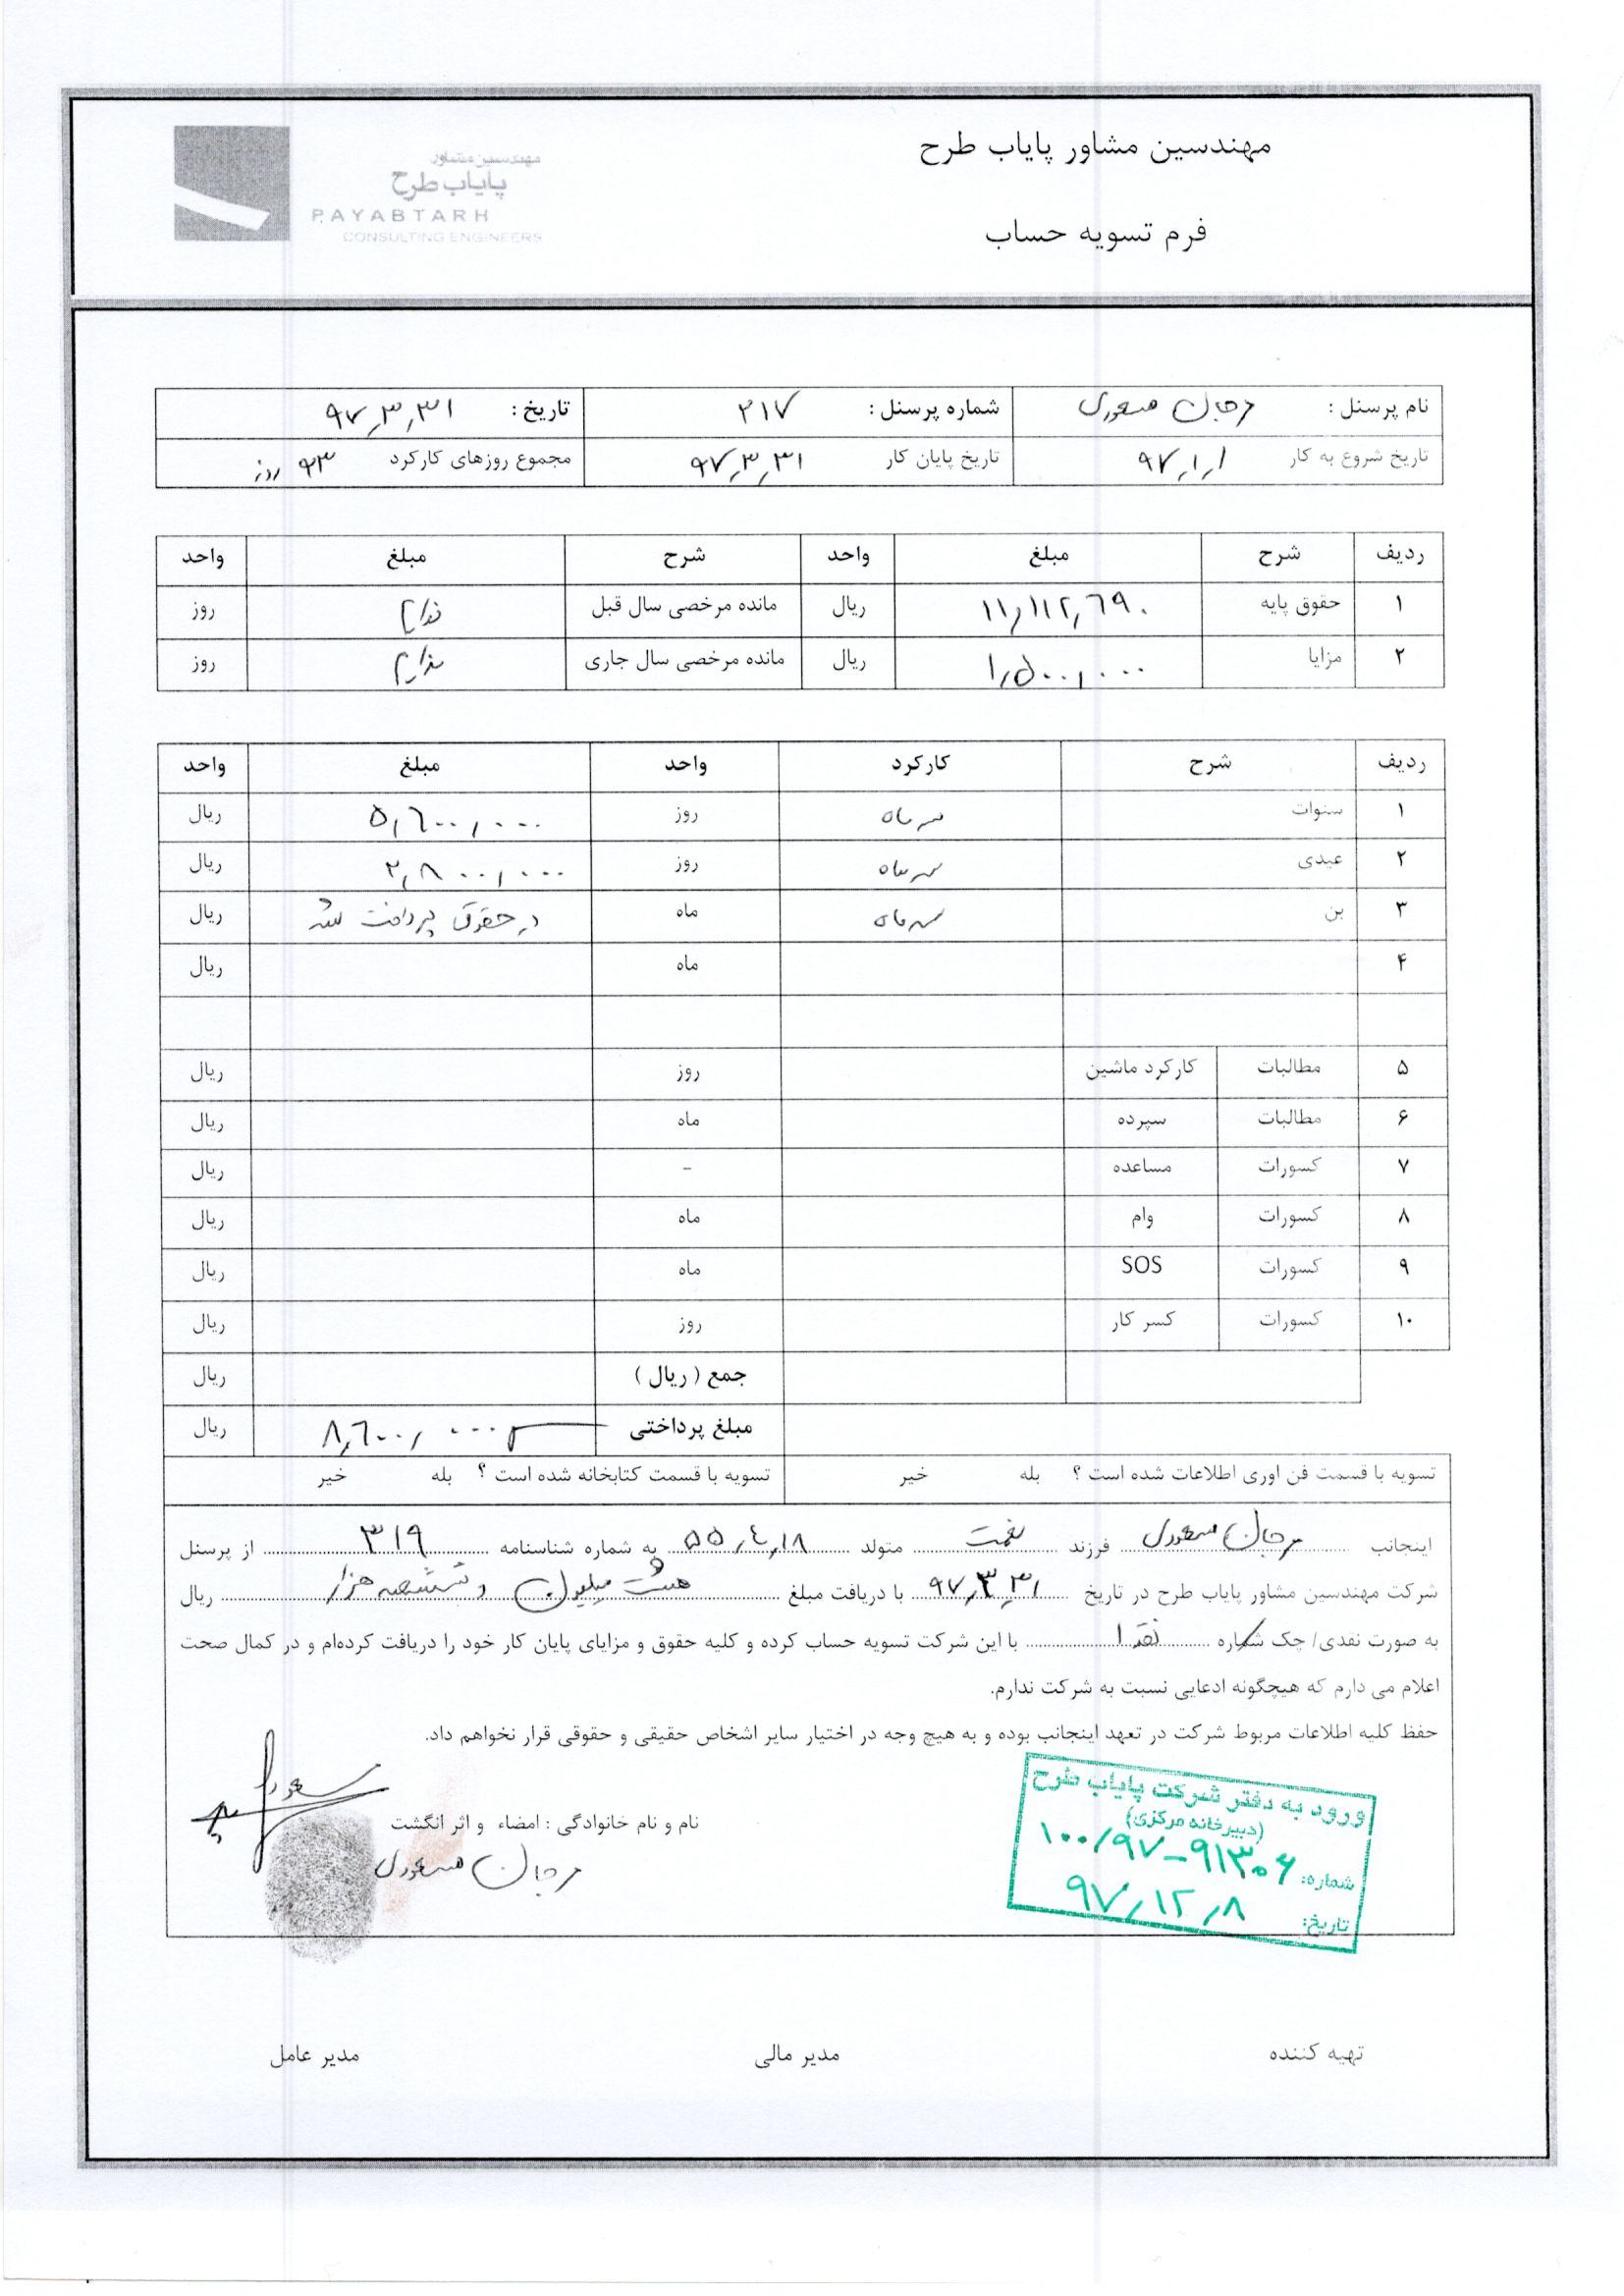 مهندسین مشاور پایاب طرح
مهندسین مشاور
پایاب طرح
PAYABTARH
CONSULTING ENGINEERS
فرم تسویه حساب
نام پرسنل : مرجان مسعودی شماره پرسنل : ۲۱۷ تاریخ : ۹۷,۳,۳۱
تاریخ شروع به کار ۹۷,۱,۱ تاریخ پایان کار ۹۷,۳,۳۱ مجموع روزهای کارکرد ۹۳ روز
ردیف شرح مبلغ واحد شرح مبلغ واحد
۱ حقوق پایه ۱۱,۱۱۲,۶۹۰ ریال مانده مرخصی سال قبل ندارم روز
۲ مزایا ۱,۵۰۰,۰۰۰ ریال مانده مرخصی سال جاری ندارم روز
ردیف شرح کارکرد واحد مبلغ واحد
۱ سنوات سه ماه روز ۵,۶۰۰,۰۰۰ ریال
۲ عیدی سه ماه روز ۲,۸۰۰,۰۰۰ ریال
۳ بن سه ماه ماه در حقوق پرداخت شد ریال
۴ ماه ریال
۵ مطالبات کارکرد ماشین روز ریال
۶ مطالبات سپرده ماه ریال
۷ کسورات مساعده - ریال
۸ کسورات وام ماه ریال
۹ کسورات SOS ماه ریال
۱۰ کسورات کسر کار روز ریال
جمع ( ریال ) ریال
مبلغ پرداختی ۸,۶۰۰,۰۰۰ ریال
تسویه با قسمت فن اوری اطلاعات شده است ؟ بله خیر تسویه با قسمت کتابخانه شده است ؟ بله خیر
اینجانب مرجان مسعودی فرزند نعمت متولد ۵۵,۴,۱۸ به شماره شناسنامه ۳۱۹ از پرسنل
شرکت مهندسین مشاور پایاب طرح در تاریخ ۹۷,۳,۳۱ با دریافت مبلغ هشت میلیون و ششصد هزار ریال
به صورت نقدی/ چک شماره نقدا با این شرکت تسویه حساب کرده و کلیه حقوق و مزایای پایان کار خود را دریافت کرده‌ام و در کمال صحت
اعلام می دارم که هیچگونه ادعایی نسبت به شرکت ندارم.
حفظ کلیه اطلاعات مربوط شرکت در تعهد اینجانب بوده و به هیچ وجه در اختیار سایر اشخاص حقیقی و حقوقی قرار نخواهم داد.
ورود به دفتر شرکت پایاب طرح
(دبیرخانه مرکزی)
شماره: ۱۰۰/۹۷-۹۱۳۰۶
تاریخ: ۹۷,۱۲,۸
نام و نام خانوادگی : امضاء و اثر انگشت
مرجان مسعودی
تهیه کننده مدیر مالی مدیر عامل